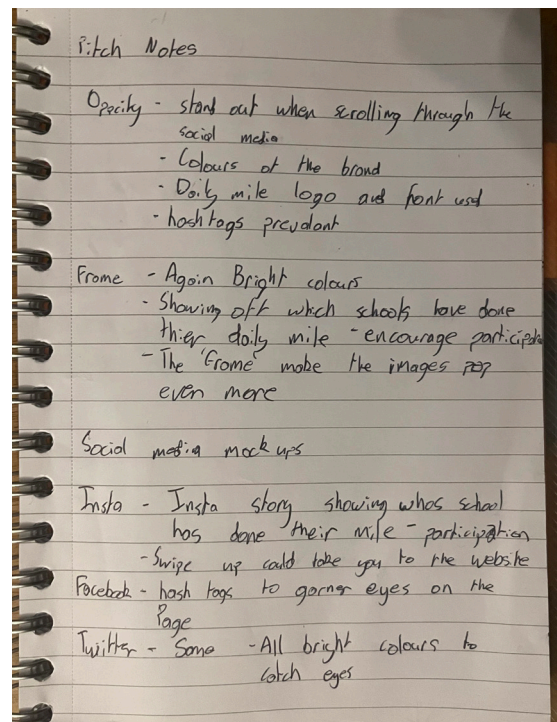 Pitch Notes
Opacity - stand out when scrolling through the
social media
- Colours of the brand
- Daily mile logo and font used
- hashtags prevalant
Frame - Again Bright colours
- Showing off which schools have done
thier daily mile - encourage participation
- The 'Frame' make the images pop
even more
Social media mock ups
Insta - Insta story showing whos school
has done their mile - participation
- Swipe up could take you to the website
Facebook - hash tags to garner eyes on the
Page
Twitter - Same - All bright colours to
catch eyes